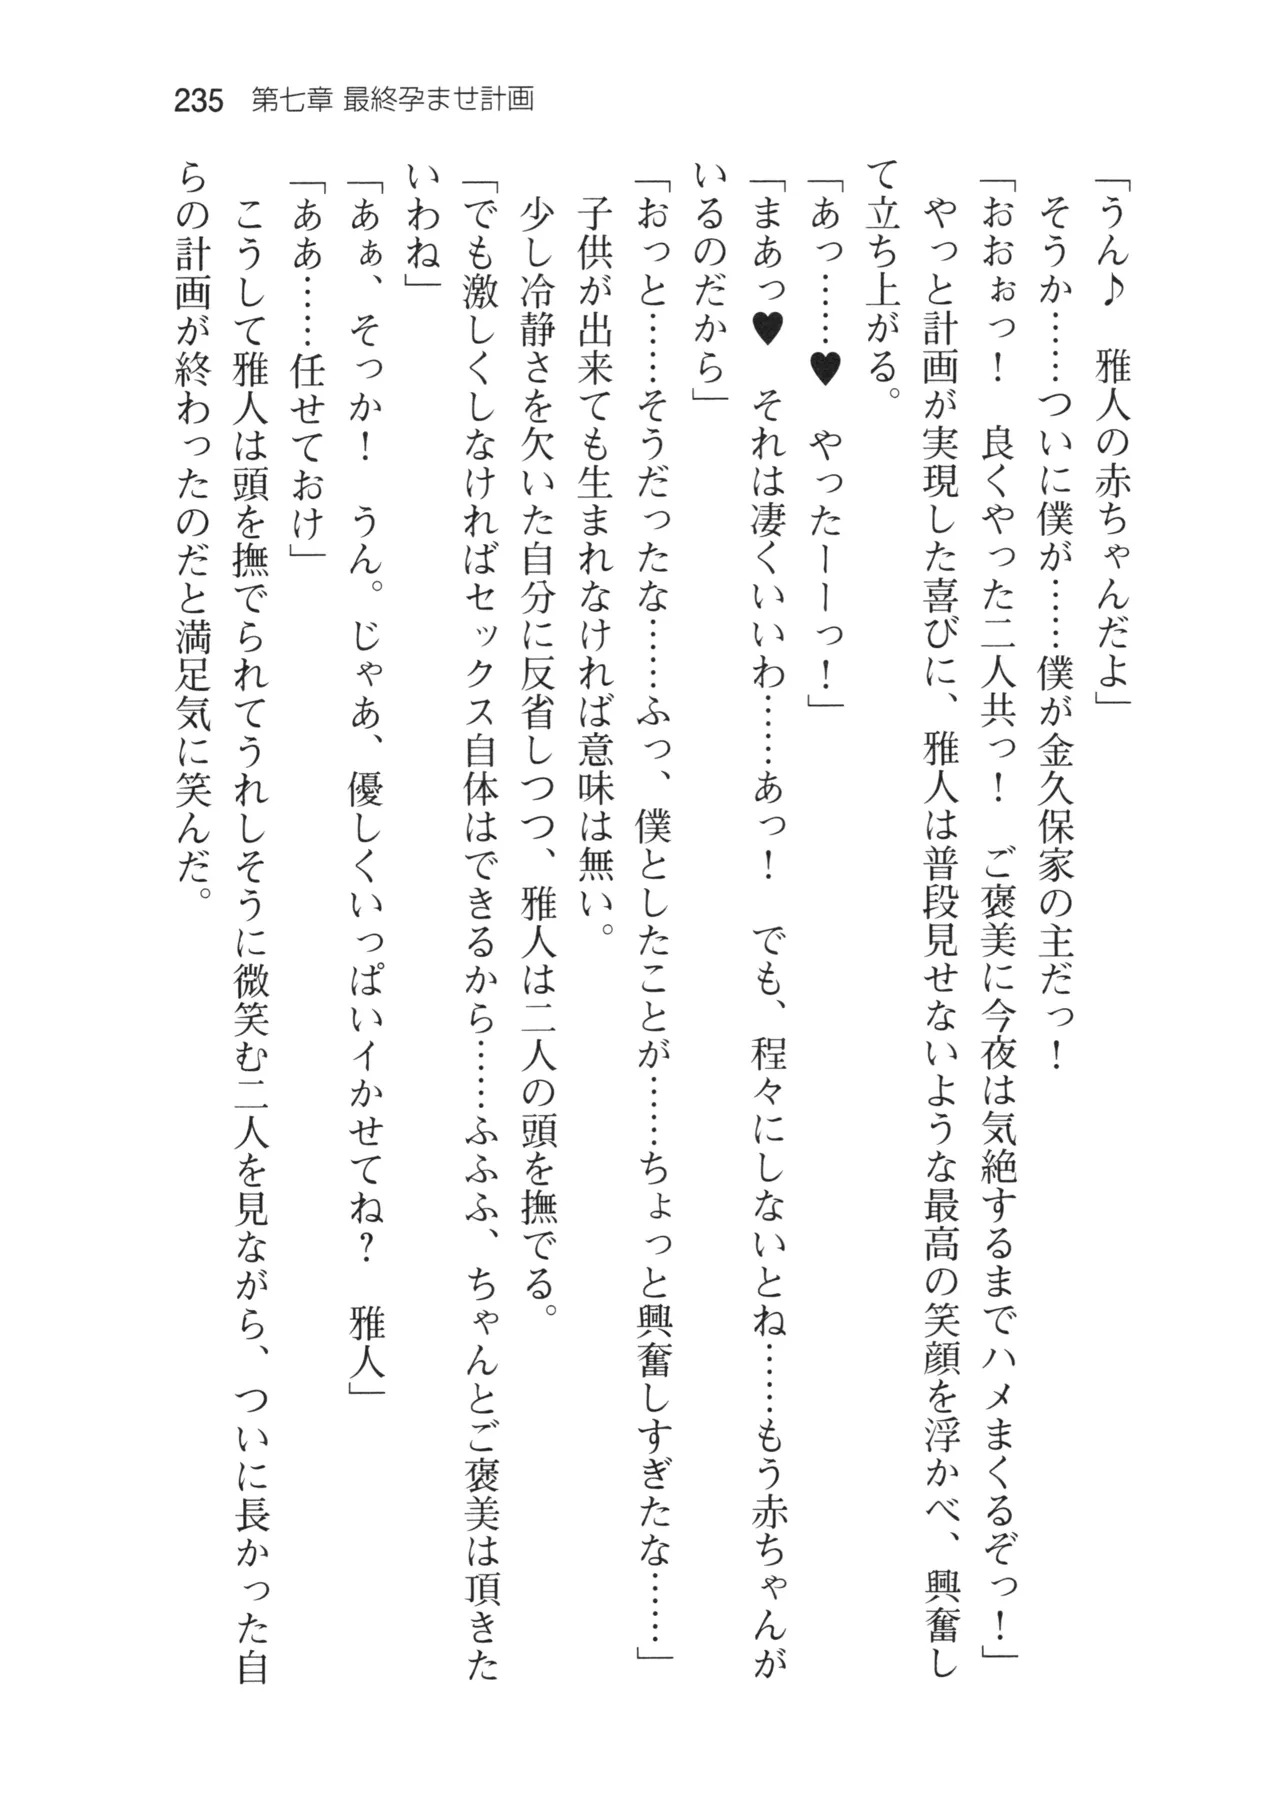 235 第七章 最終孕ませ計画
「うん♪　雅人の赤ちゃんだよ」
　そうか……ついに僕が……僕が金久保家の主だっ！
「おおぉっ！　良くやった二人共っ！　ご褒美に今夜は気絶するまでハメまくるぞっ！」
　やっと計画が実現した喜びに、雅人は普段見せないような最高の笑顔を浮かべ、興奮し
て立ち上がる。
「あっ……♥　やったーーっ！」
「まあっ♥　それは凄くいいわ……あっ！　でも、程々にしないとね……もう赤ちゃんが
いるのだから」
「おっと……そうだったな……ふっ、僕としたことが……ちょっと興奮しすぎたな……」
　子供が出来ても生まれなければ意味は無い。
　少し冷静さを欠いた自分に反省しつつ、雅人は二人の頭を撫でる。
「でも激しくしなければセックス自体はできるから……ふふふ、ちゃんとご褒美は頂きた
いわね」
「あぁ、そっか！　うん。じゃあ、優しくいっぱいイかせてね？　雅人」
「ああ……任せておけ」
　こうして雅人は頭を撫でられてうれしそうに微笑む二人を見ながら、ついに長かった自
らの計画が終わったのだと満足気に笑んだ。